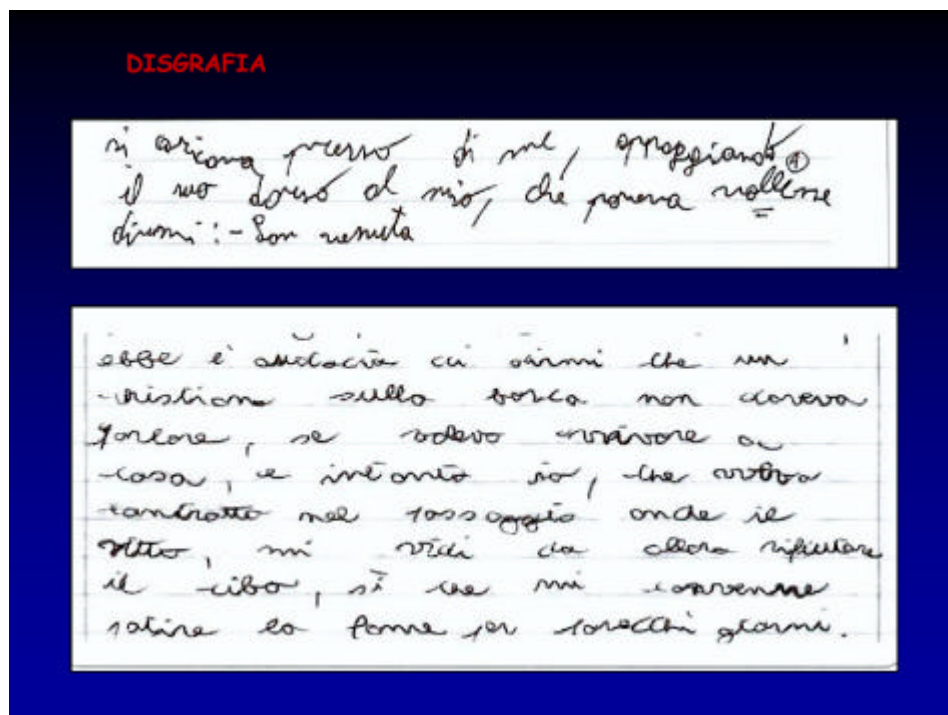 DISGRAFIA
presso di me, appoggiando
il suo dorso al mio, che pareva vollesse
dirmi: - Son venuta
ebbe l'audacia di dirmi che un
cristiano sulla barca non doveva
parlare, se volevo arrivare a
casa, e intanto io, che
contratto nel passaggio onde il
vitto, mi vidi da allora rifiutare
il cibo, sì che mi convenne
patire la fame per parecchi giorni.